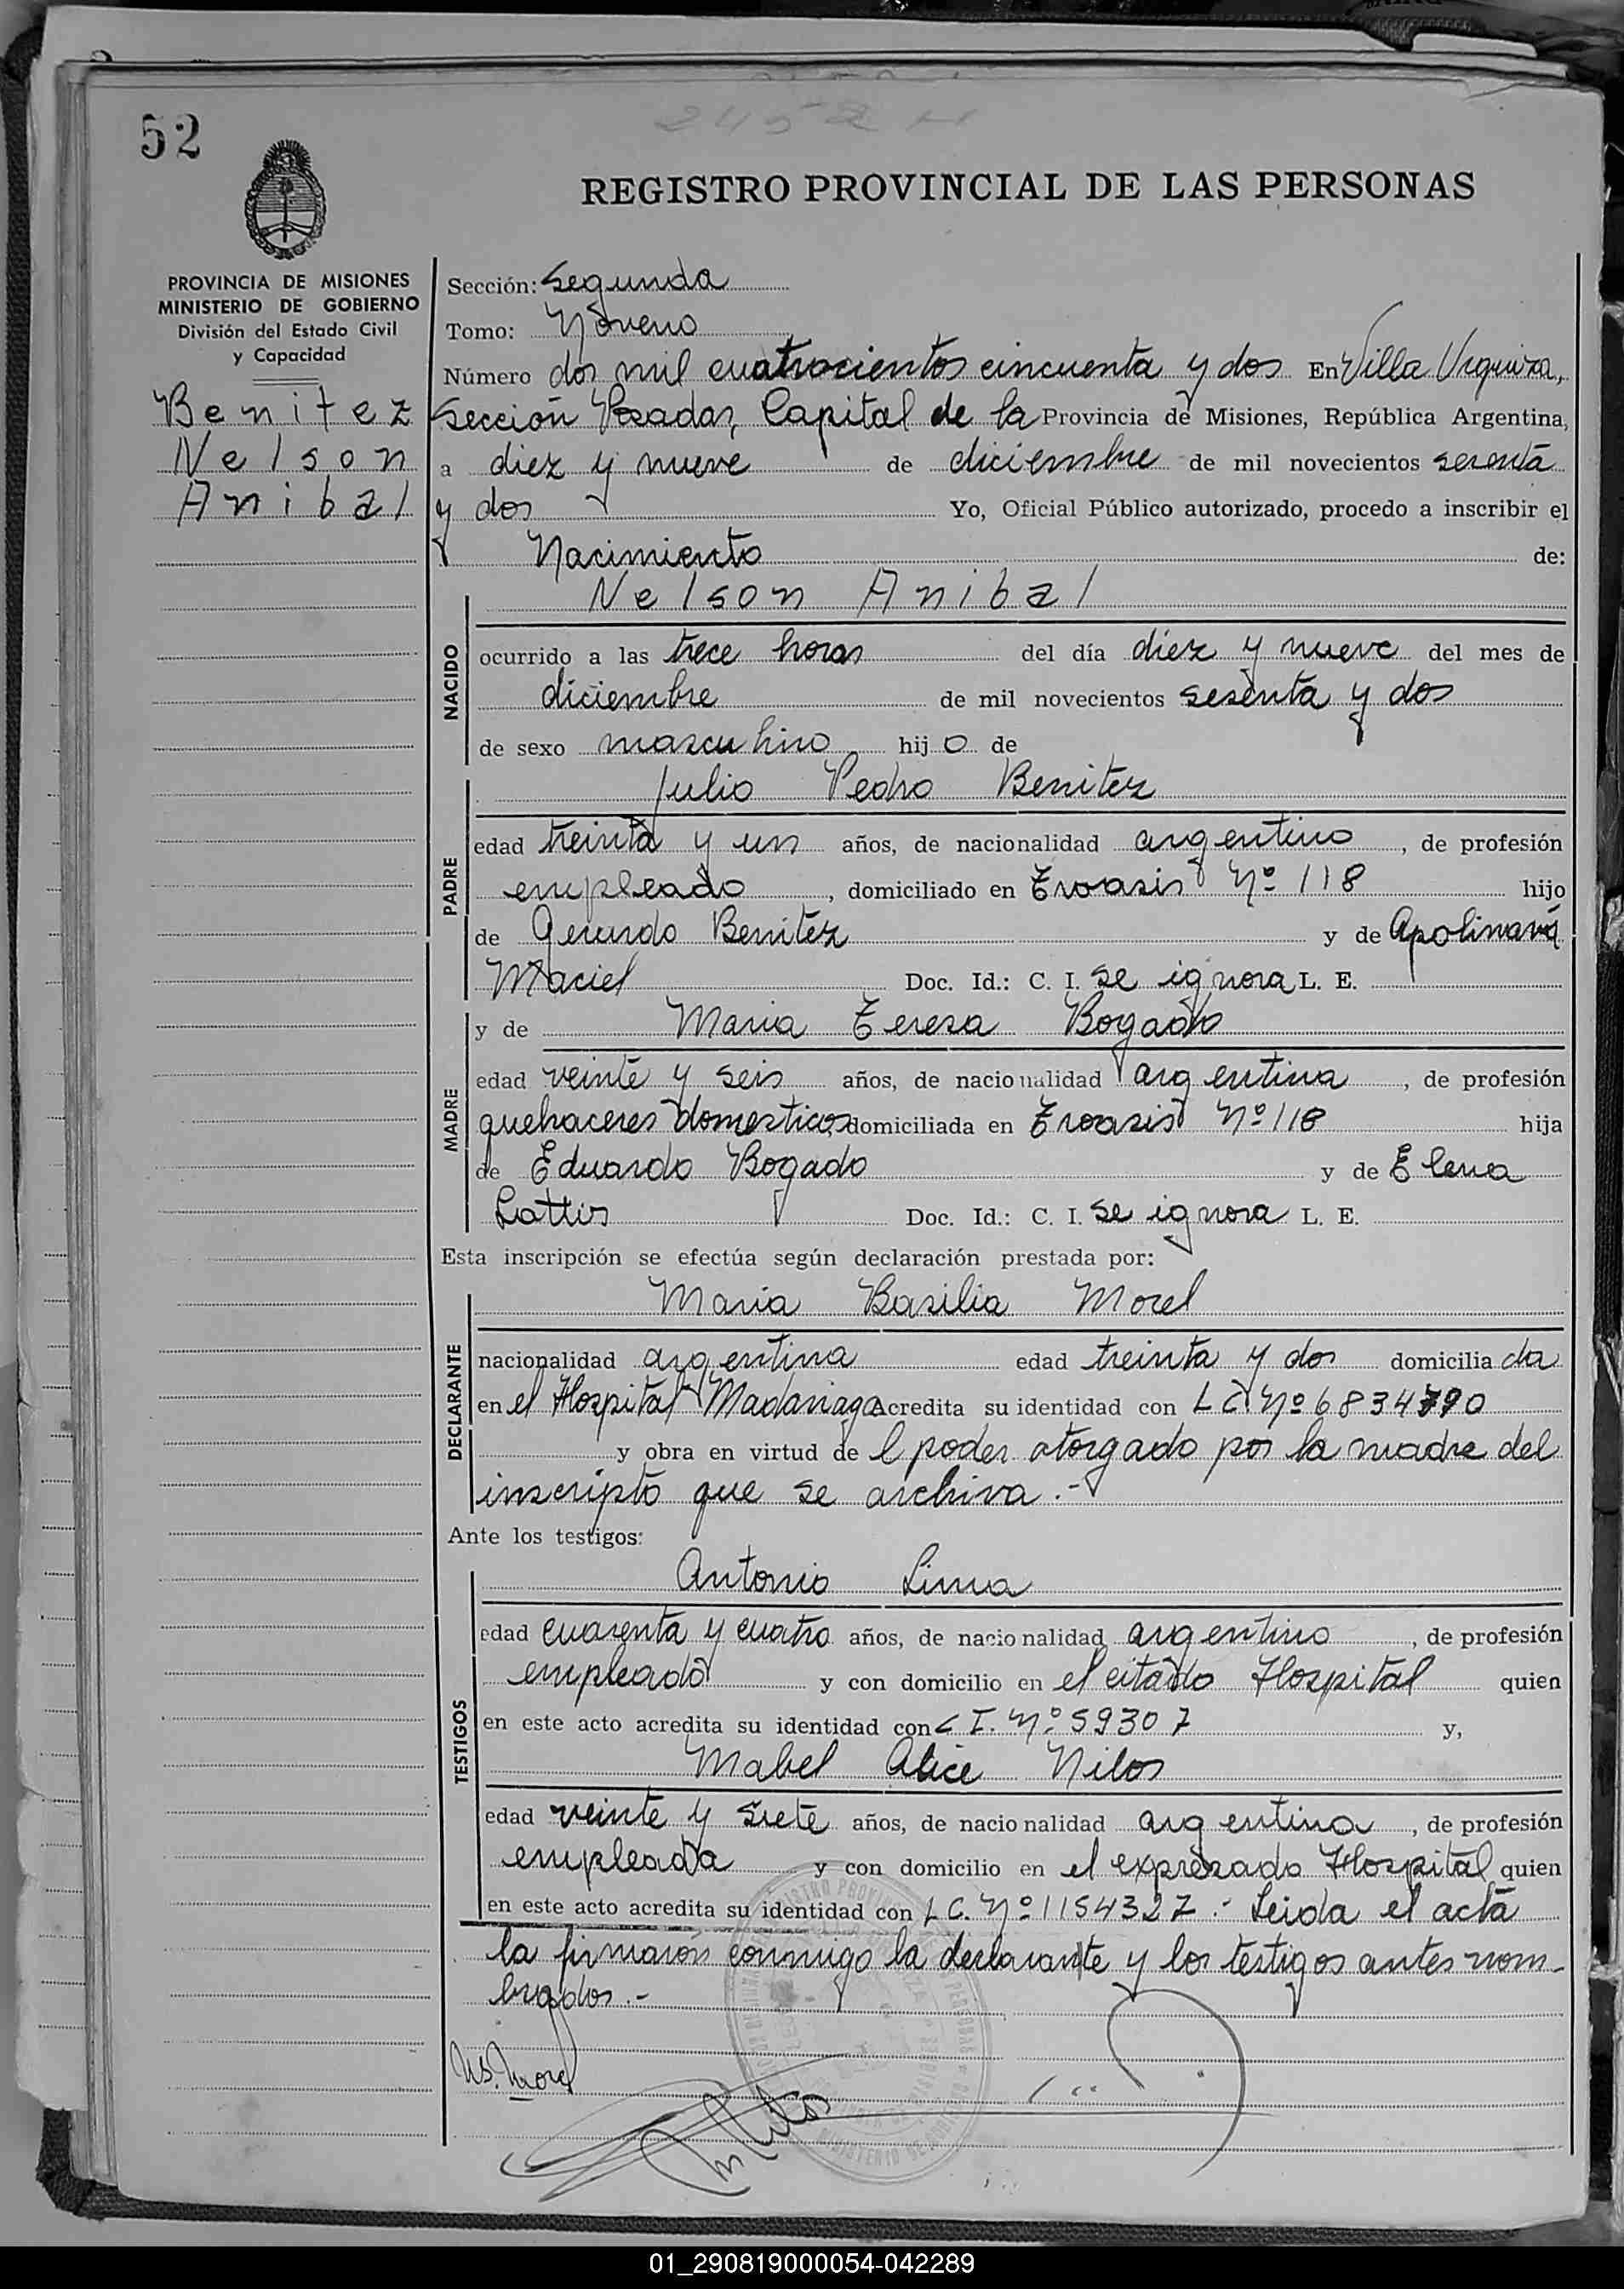 52
2452
REGISTRO PROVINCIAL DE LAS PERSONAS
PROVINCIA DE MISIONES
MINISTERIO DE GOBIERNO
División del Estado Civil
y Capacidad
Benitez
Nelson
Anibal
Sección: Segunda
Tomo: Noveno
Número dos mil cuatrocientos cincuenta y dos En Villa Urquiza,
Sección Posadas, Capital de la Provincia de Misiones, República Argentina,
a diez y nueve de diciembre de mil novecientos sesenta
y dos Yo, Oficial Público autorizado, procedo a inscribir el
Nacimiento de:
Nelson Anibal
NACIDO
ocurrido a las trece horas del día diez y nueve del mes de
diciembre de mil novecientos sesenta y dos
de sexo masculino hijo de
Julio Pedro Benitez
PADRE
edad treinta y un años, de nacionalidad argentino, de profesión
empleado, domiciliado en Nº 118 hijo
de Gerardo Benitez y de Apolinaria
Maciel Doc. Id.: C. I. se ignora L. E.
y de Maria Teresa Bogado
MADRE
edad veinte y seis años, de nacionalidad argentina, de profesión
quehaceres domesticos, domiciliada en Nº 118 hija
de Eduardo Bogado y de Elena
Doc. Id.: C. I. se ignora L. E.
Esta inscripción se efectúa según declaración prestada por:
Maria Basilia Morel
DECLARANTE
nacionalidad argentina edad treinta y dos domiciliada
en el Hospital Madariaga acredita su identidad con L C. Nº 6834790
y obra en virtud del poder otorgado por la madre del
inscripto que se archiva.-
Ante los testigos:
Antonio Lima
TESTIGOS
edad cuarenta y cuatro años, de nacionalidad argentino, de profesión
empleado y con domicilio en el citado Hospital quien
en este acto acredita su identidad con C I. Nº 59307 y,
Mabel Alice Nilos
edad veinte y siete años, de nacionalidad argentina, de profesión
empleada y con domicilio en el expresado Hospital quien
en este acto acredita su identidad con L C. Nº 1154327.- Leida el acta
la firmaron conmigo la declarante y los testigos antes nom-
brados.-
Morel
01_290819000054-042289